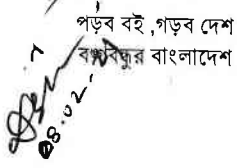 পড়ব বই ,গড়ব দেশ
বঙ্গবন্ধুর বাংলাদেশ